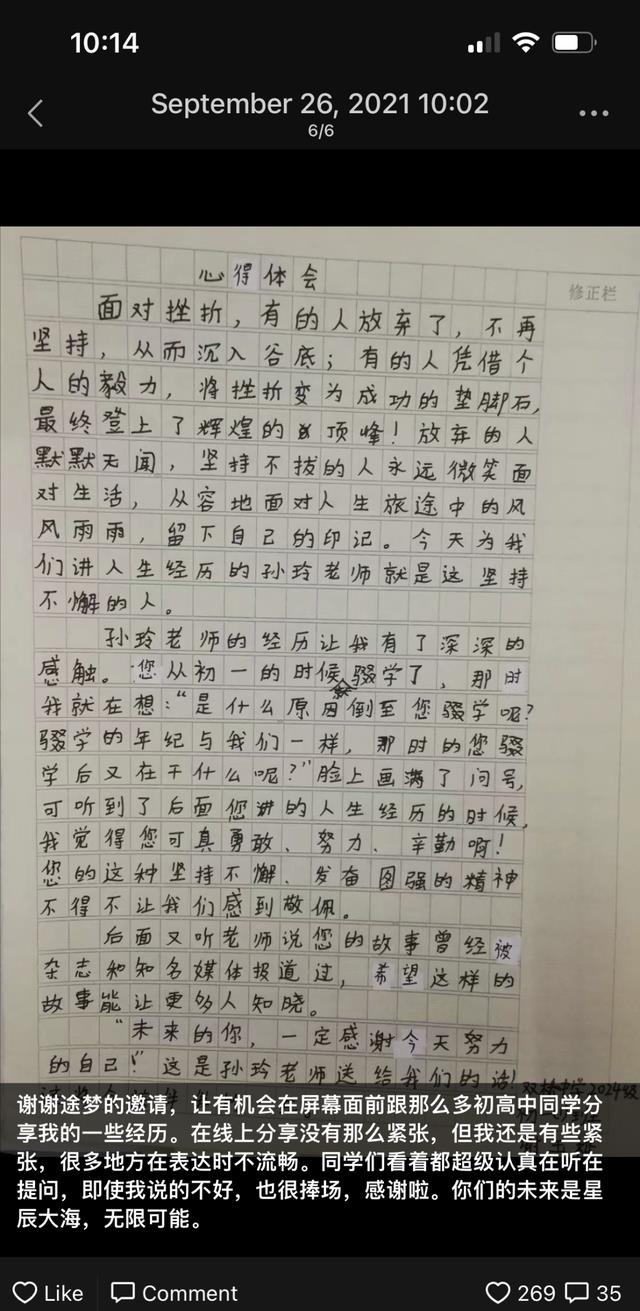 10:14
September 26, 2021 10:02
6/6
修正栏
心得体会
面对挫折，有的人放弃了，不再
坚持，从而沉入谷底；有的人凭借个
人的毅力，将挫折变为成功的垫脚石，
最终登上了辉煌的顶峰！放弃的人
默默无闻，坚持不拔的人永远微笑面
对生活，从容地面对人生旅途中的风
风雨雨，留下自己的印记。今天为我
们讲人生经历的孙玲老师就是这坚持
不懈的人。
孙玲老师的经历让我有了深深的
感触。您从初一的时候辍学了，那时
我就在想：“是什么原因倒至您辍学呢？
辍学的年纪与我们一样，那时的您辍
学后又在干什么呢？”脸上画满了问号，
可听到了后面您讲的人生经历的时候，
我觉得您可真勇敢、努力、辛勤啊！
您的这种坚持不懈、发奋图强的精神
不得不让我们感到敬佩。
后面又听老师说您的故事曾经被
杂志和知名媒体报道过，希望这样的
故事能让更多人知晓。
“未来的你，一定感谢今天努力
的自己！”这是孙玲老师送给我们的话！
2024级
谢谢途梦的邀请，让有机会在屏幕面前跟那么多初高中同学分
享我的一些经历。在线上分享没有那么紧张，但我还是有些紧
张，很多地方在表达时不流畅。同学们看着都超级认真在听在
提问，即使我说的不好，也很捧场，感谢啦。你们的未来是星
辰大海，无限可能。
Like
Comment
269
35